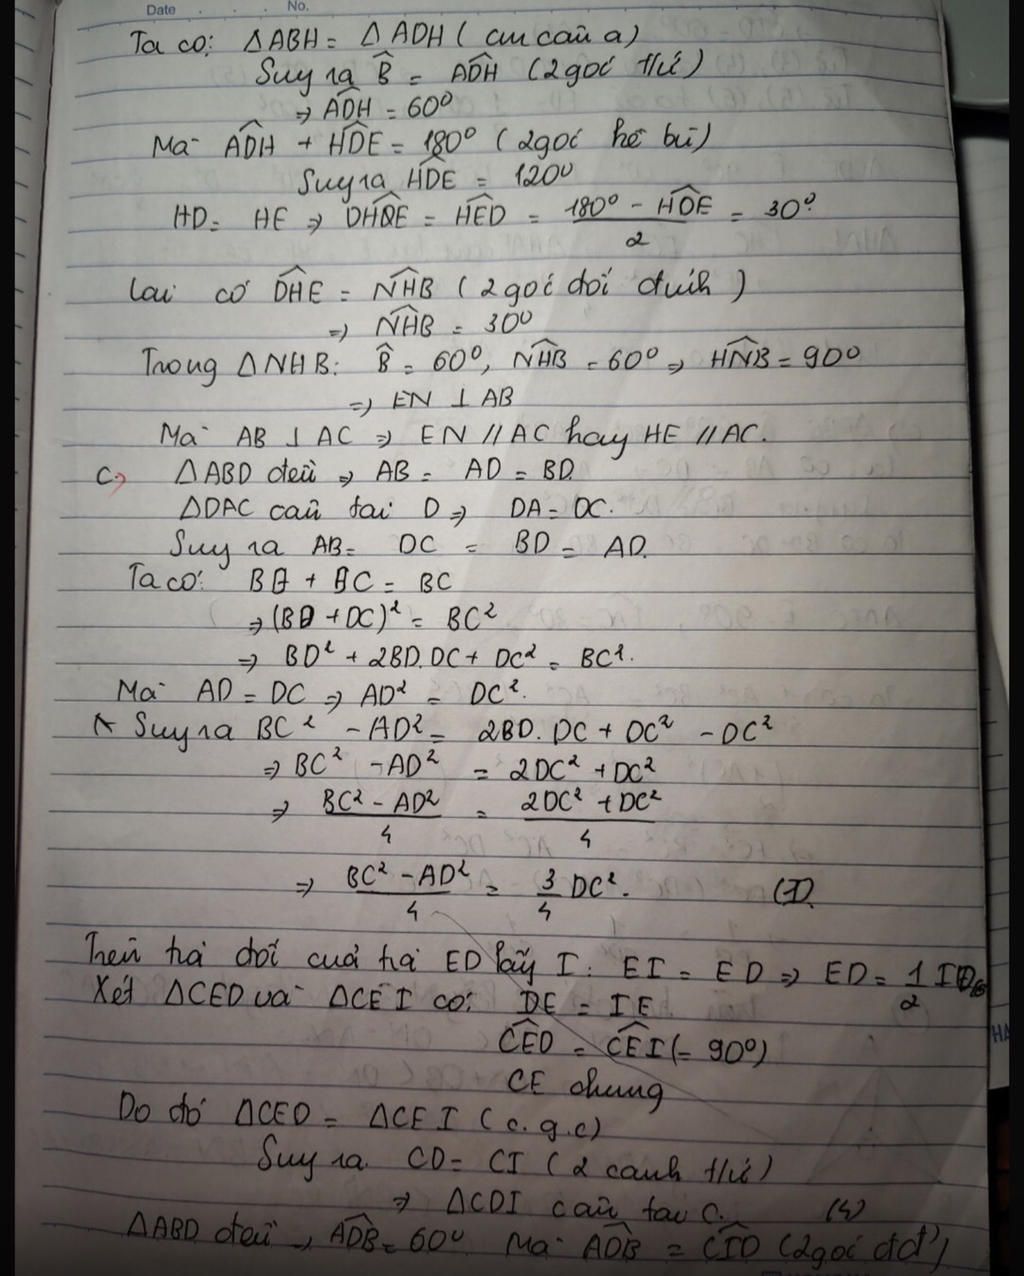 Date No.
Ta có: ΔABH = ΔADH (cm câu a)
Suy ra B̂ = ADH (2 góc t/ứ)
⇒ ADH = 60°
Mà ADH + HDE = 180° (2 góc kề bù)
Suy ra HDE = 120°
HD = HE ⇒ DHE = HED = (180° - HDE)/2 = 30°
Lại có DHE = NHB (2 góc đối đỉnh)
⇒ NHB = 30°
Trong ΔNHB: B̂ = 60°, NHB = 60° ⇒ HNB = 90°
⇒ EN ⊥ AB
Mà AB ⊥ AC ⇒ EN // AC hay HE // AC.
C, ΔABD đều ⇒ AB = AD = BD.
ΔDAC cân tại D ⇒ DA = DC.
Suy ra AB = DC = BD = AD.
Ta có: BD + DC = BC
⇒ (BD + DC)² = BC²
⇒ BD² + 2BD.DC + DC² = BC².
Mà AD = DC ⇒ AD² = DC².
Suy ra BC² - AD² = 2BD.DC + DC² - DC²
⇒ BC² - AD² = 2DC² + DC²
⇒ (BC² - AD²)/4 = (2DC² + DC²)/4
⇒ (BC² - AD²)/4 = 3/4 DC². (1).
Trên tia đối của tia ED lấy I: EI = ED ⇒ ED = 1/2 ID
Xét ΔCED và ΔCEI có: DE = IE
CED = CEI (= 90°)
CE chung
Do đó ΔCED = ΔCEI (c.g.c)
Suy ra CD = CI (2 cạnh t/ứ)
⇒ ΔCDI cân tại C.
ΔABD đều ⇒ ADB = 60° Mà ADB = CID (2 góc đđ)